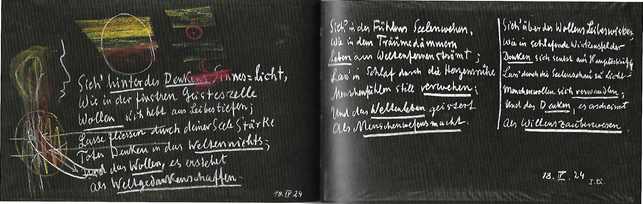 Sieh' hinter des Denkens Sinnes-Licht,
Wie in der finstren Geisteszelle
Wollen sich hebt aus Leibestiefen;
Lasse fliessen durch deiner Seele Stärke
Totes Denken in das Weltennichts;
Und das Wollen, es erstehet
Als Weltgedankenschaffen.
18. IV 24
Sieh' in des Fühlens Seelenwehen,
Wie in dem Träumedämmern
Leben aus Weltenfernen strömt;
Lass' in Schlaf durch die Herzensruhe
Menschenfühlen still verwehen;
Und das Weltenleben geistert
Als Menschenwesensmacht.
Sieh' über des Wollens Leibeswirken,
Wie in schlafende Wirkensfelder
Denken sich senkt aus Haupteskräften;
Lass' durch die Seelenschau zu Licht
Menschenwollen sich verwandeln;
Und das Denken, es erscheinet
Als Willenszauberwesen.
18. IV. 24